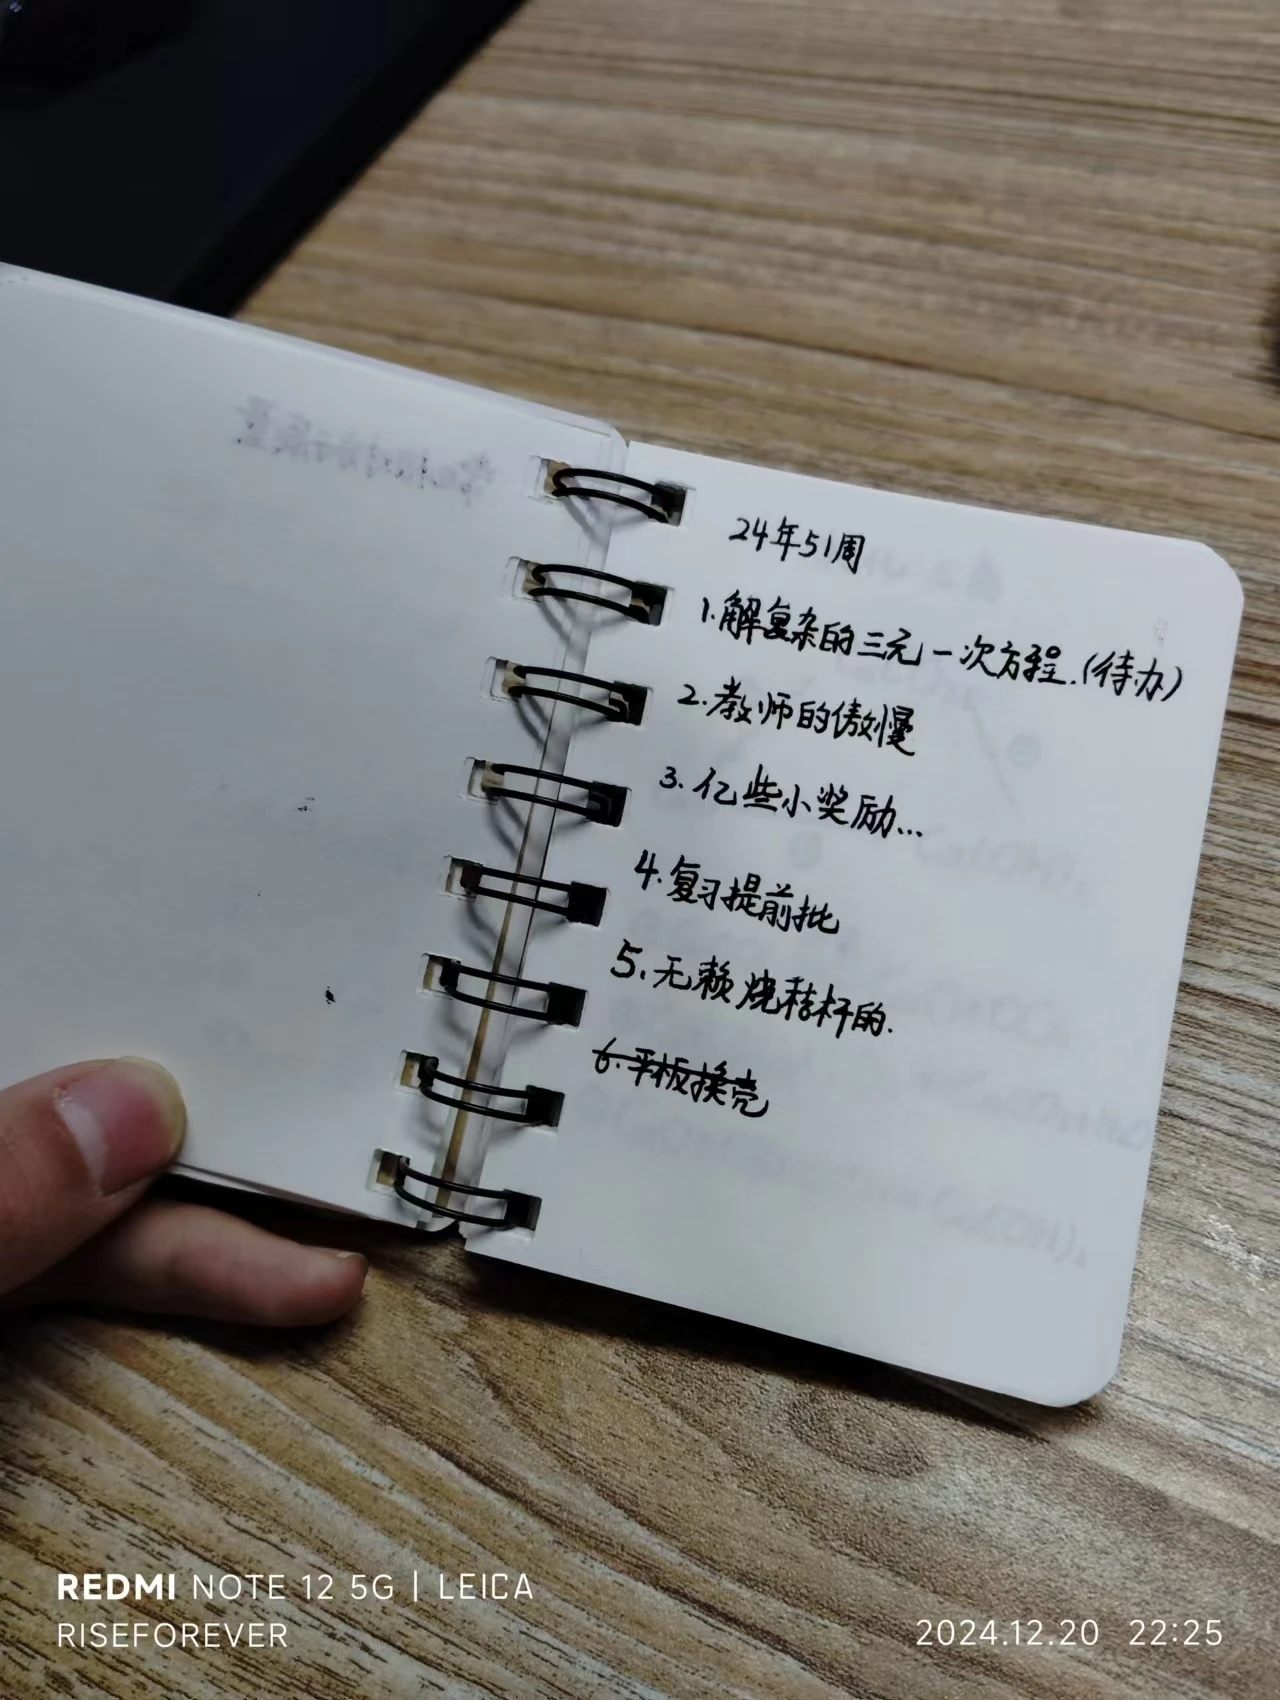 24年51周
1.解复杂的三元一次方程.(待办)
2.教师的傲慢
3.亿些小奖励...
4.复习提前批
5.无赖烧秸杆的.
6.平板换壳
REDMI NOTE 12 5G | LEICA
RISEFOREVER
2024.12.20 22:25